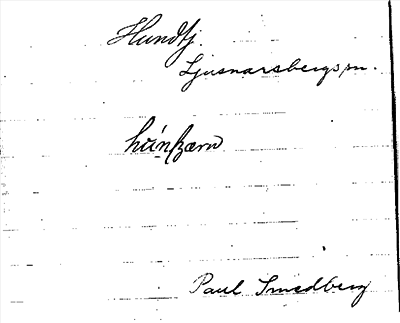 Hundtj.
Ljusnarsbergs sn.
hún̥ʃæɳ
Paul Smedberg